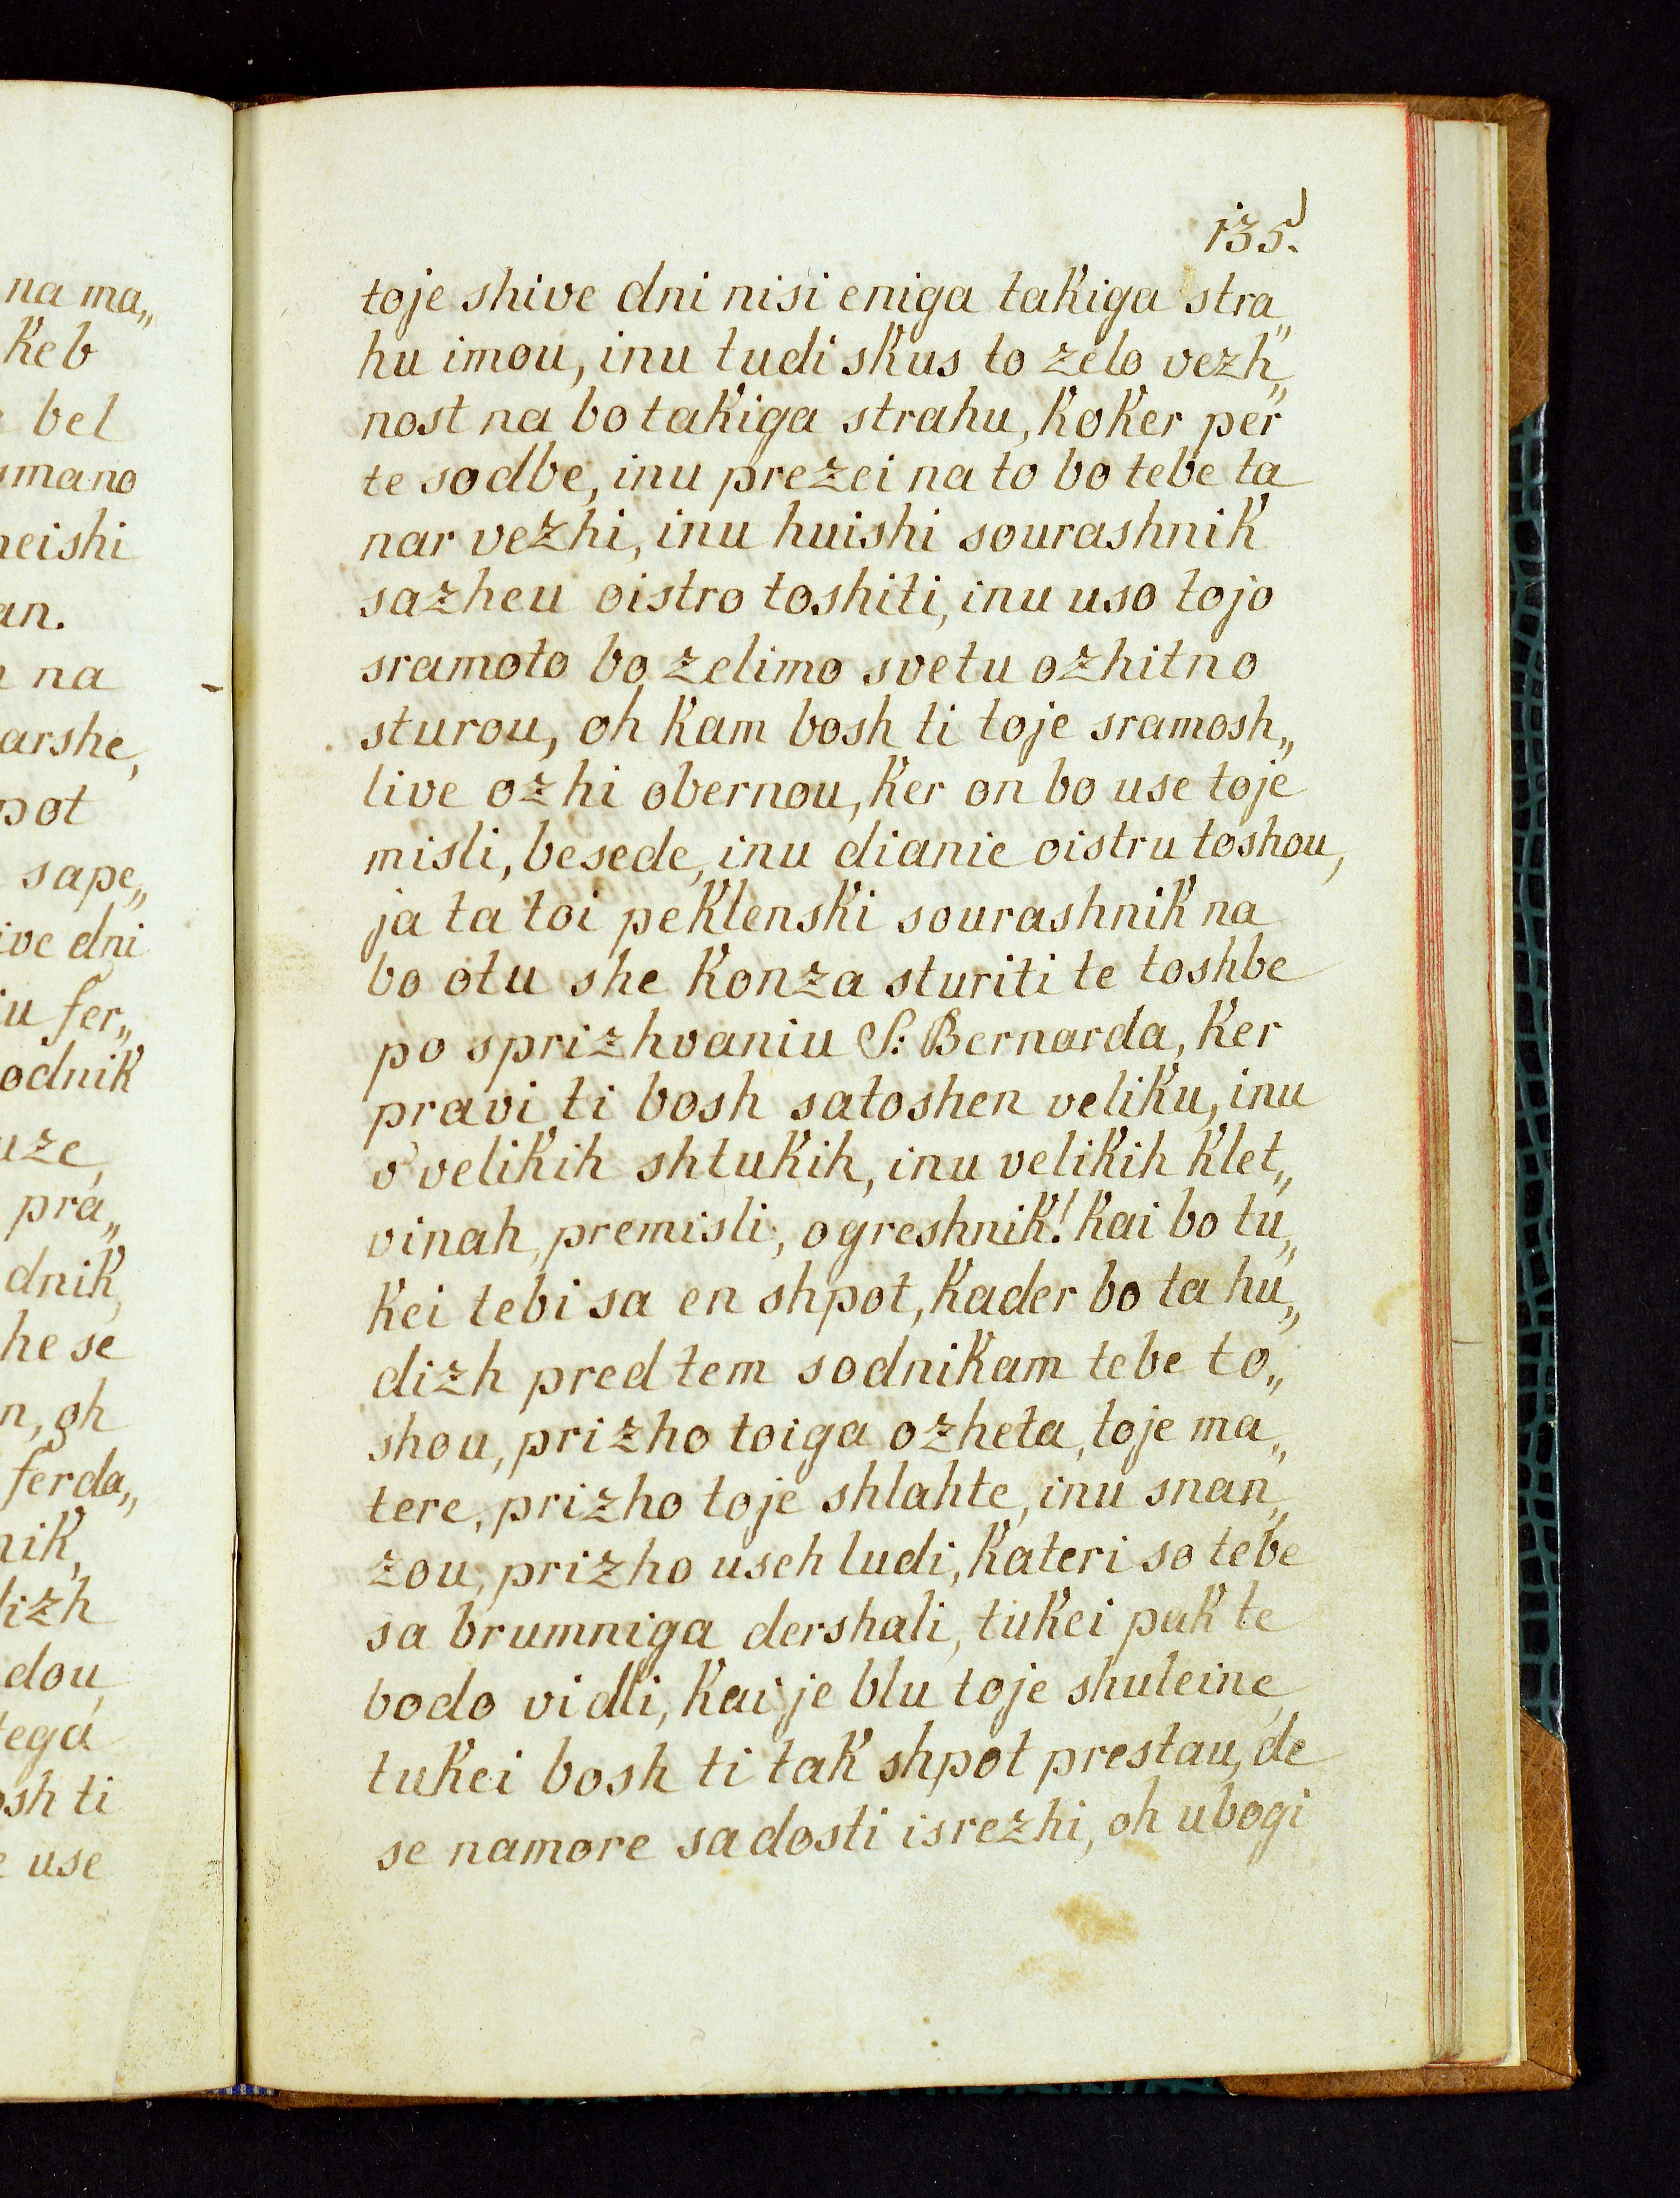 na ma„
keb
bel
mano
neishi
an.
na
arshe,
pot
sape„
ive dni
iu fer„
odnik
uze,
pra„
dnik,
he se
n, oh
ferda„
nik,
lizh
dou,
tega
osh ti
e use
135.
toje shive dni nisi eniga takiga stra„
hu imou, inu tudi skus to zelo vezh„
nost na bo takiga strahu, koker per
te sodbe, inu prezei na to bo tebe ta
nar vezhi, inu huishi sourashnik
sazheu oistro toshiti, inu uso tojo
sramoto bo zelimo svetu ozhitno
sturou, oh kam bosh ti toje sramosh„
live ozhi obernou, ker on bo use toje
misli, besede, inu dianie oistru toshou,
ja ta toi peklenski sourashnik na
bo otu she konza sturiti te toshbe
po sprizhvaniu S: Bernarda, ker
pravi ti bosh satoshen veliku, inu
o velikih shtukih, inu velikih klet„
vinah, premisli, o greshnik! kai bo tu„
kei tebi sa en shpot, kader bo ta hu„
dizh pred tem sodnikam tebe to„
shou, prizho toiga ozheta, toje ma„
tere, prizho toje shlahte, inu snan„
zou, prizho useh ludi, kateri so tebe
sa brumniga dershali, tukei pak te
bodo vidli, kai je blu toje shuleine,
tukei bosh ti tak shpot prestau, de
se namore sadosti isrezhi, oh ubogi